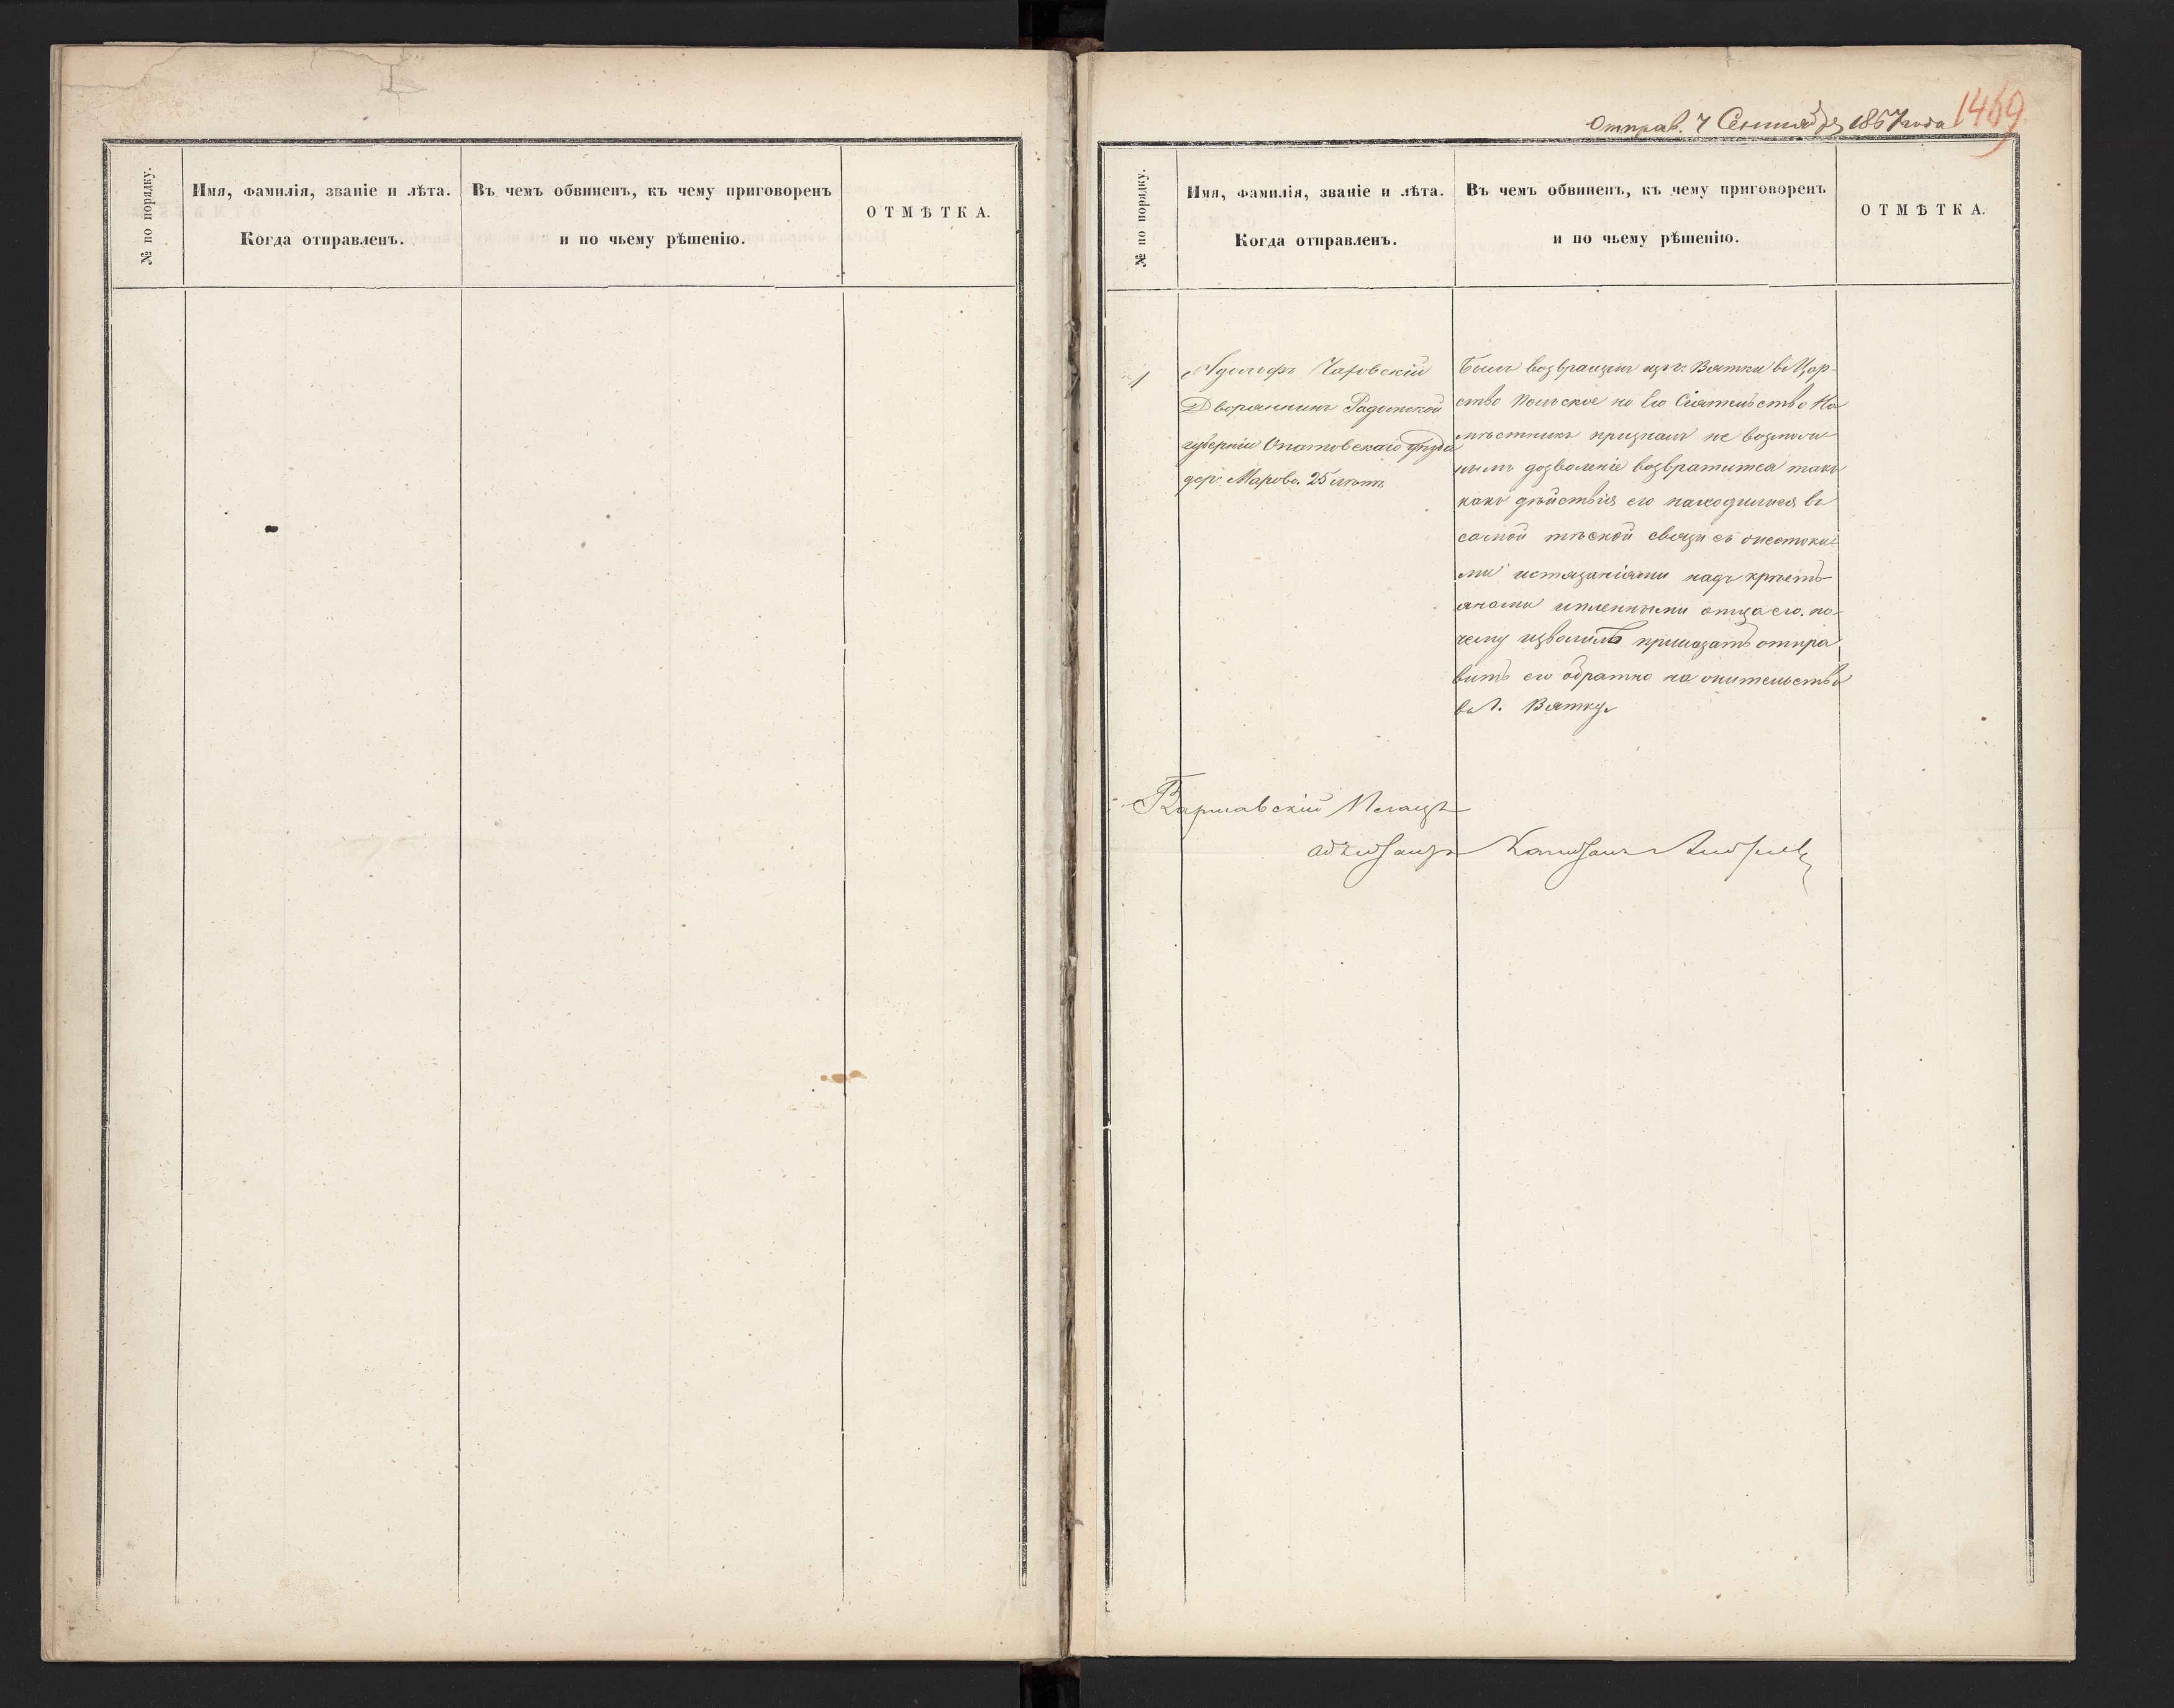 № по порядку.
Имя, фамилія, званіе и лѣта.
Когда отправленъ.
Въ чемъ обвиненъ, къ чему приговоренъ
и по чьему рѣшенію.
ОТМѢТКА.
Отправ. 7 Сентября 1867 года
1469
№ по порядку.
Имя, фамилія, званіе и лѣта.
Когда отправленъ.
Въ чемъ обвиненъ, къ чему приговоренъ
и по чьему рѣшенію.
ОТМѢТКА.
1
Адольфъ Чаровскій
Дворянинъ Радомской
губерніи Опатовскаго уѣзда
дер. 25 лѣтъ
Былъ возвращенъ изъ г. Вятки въ Цар-
ство Польское но Его Сіятельство На
мѣстникъ призналъ не возмож
нымъ дозволеніе возвратится такъ
какъ дѣйствія его находились въ
самой тѣсной связи съ жестоки
ми истязаніями надъ крѣсть-
янами имѣнными отца его. по-
чему изволилъ приказать отпра
вить его обратно на жительство
въ г. Вятку
Варшавскій Плацъ
адъютантъ Капитанъ